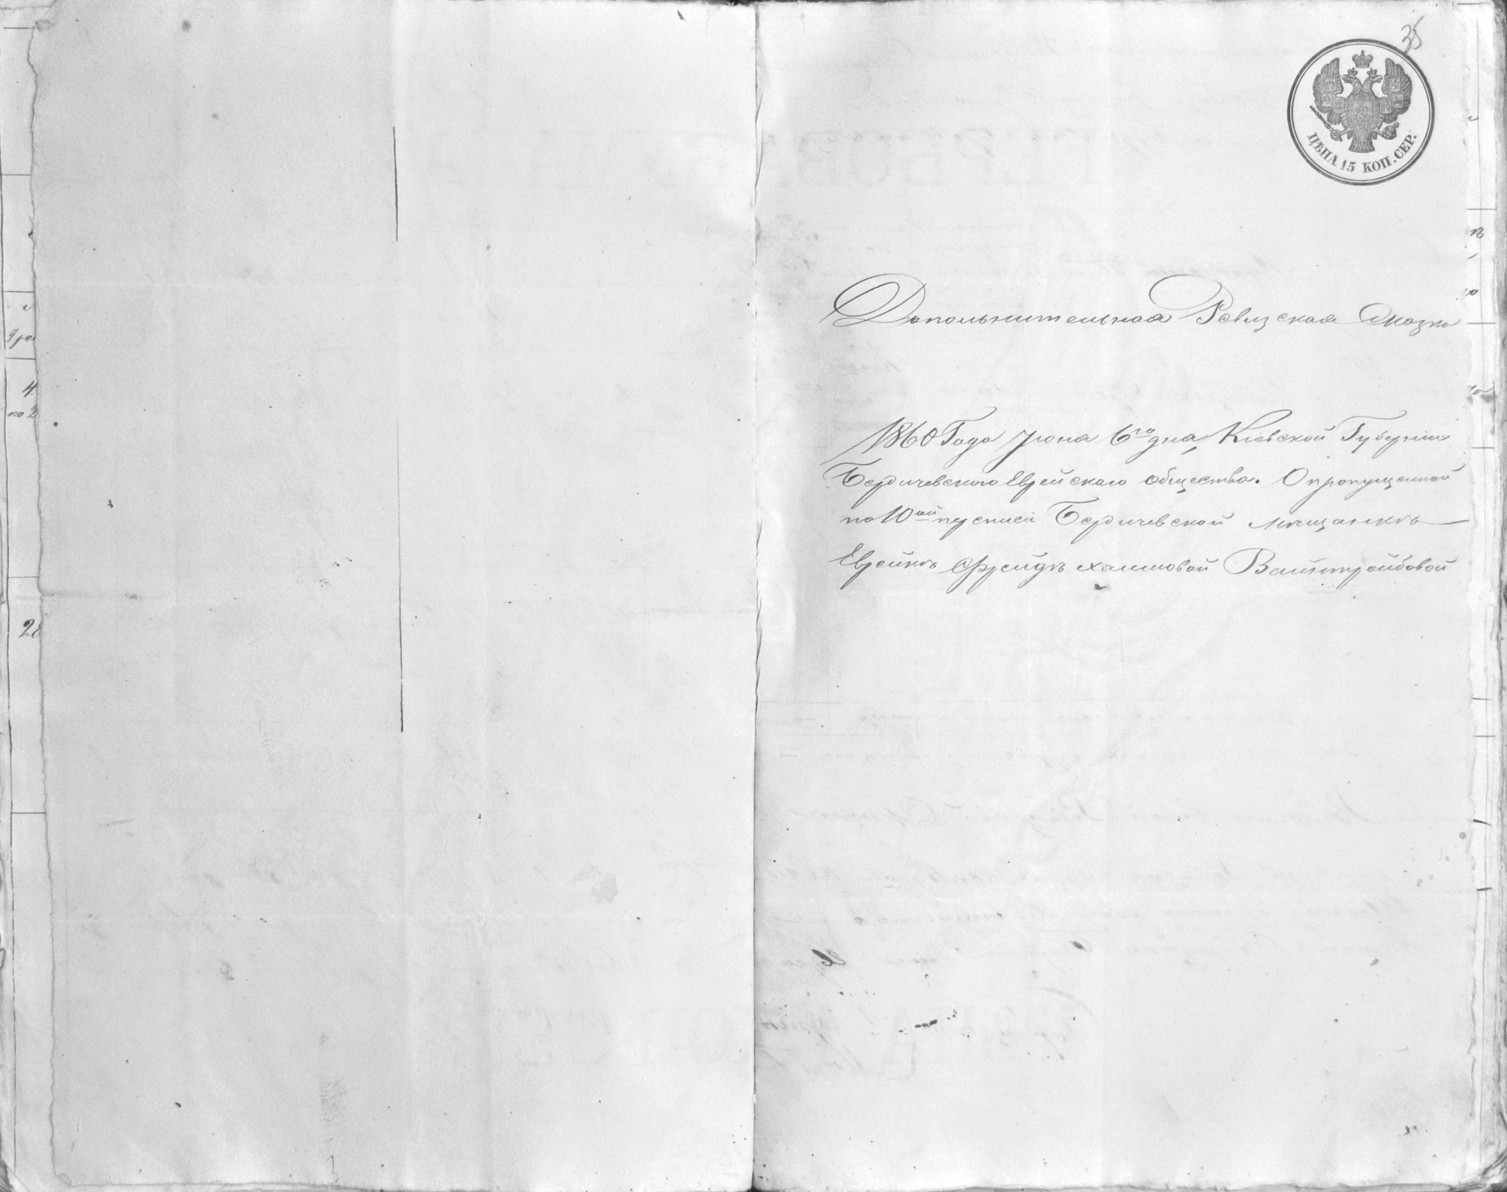 35
ЦѢНА 15 КОП. СЕР.
Дополнительная Ревизская Сказка
1860 Года Июня 6го дня, Кіевской Губерніи
Бердичевского Еврейскаго общества. О пропущенной
по 10ой переписи Бердичевской мещанкѣ
Еврейкѣ Фрейдѣ Хаимовой Вайнтройбовой
4
2
28